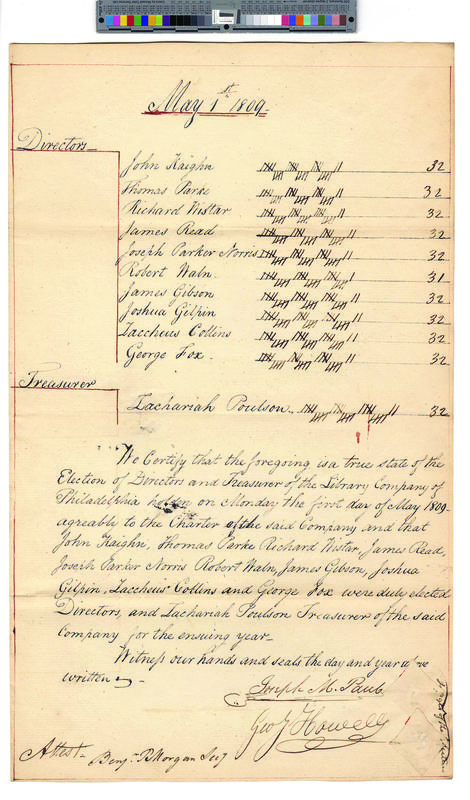 May 1st 1809
Directors
John Kaighn 32
Thomas Parke 32
Richard Wistar 32
James Read 32
Joseph Parker Norris 32
Robert Waln 31
James Gibson 32
Joshua Gilpin 32
Zaccheus Collins 32
George Fox 32
Treasurer
Zachariah Poulson 32
We Certify that the foregoing is a true state of the
Election of Directors and Treasurer of the Library Company of
Philadelphia holden on Monday the first day of May 1809
agreable to the Charter of the said Company and that
John Kaighn, Thomas Parke Richard Wistar, James Read,
Joseph Parker Norris Robert Waln, James Gibson, Joshua
Gilpin, Zaccheus Collins and George Fox were duly elected
Directors, and Zachariah Poulson Treasurer of the said
Company for the ensuing year
Witness our hands and seals the day and year
written
Joseph M. Paul
Geo Howell
Attest Benjn R Morgan Secy